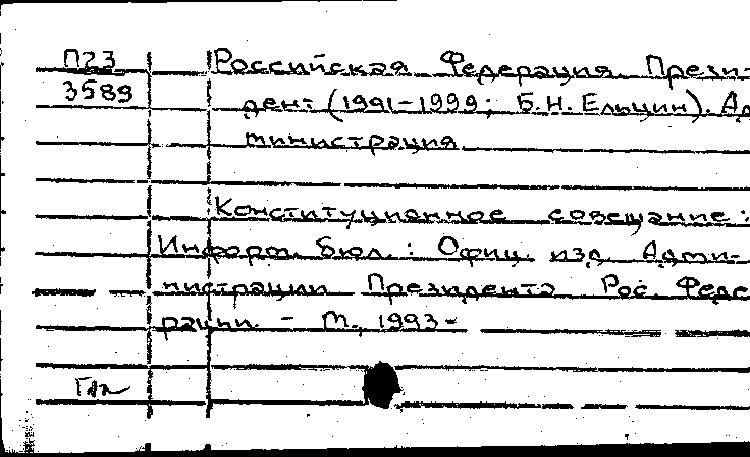 П23
3589
Российская Федерация. Прези-
дент (1991-1999; Б.Н. Ельцин). Ад
министрация.
Конституционное совещание:
Информ. бюл.: Офиц. изд. Адми-
нистрации Президента Рос. Феде
рации. - М., 1993-